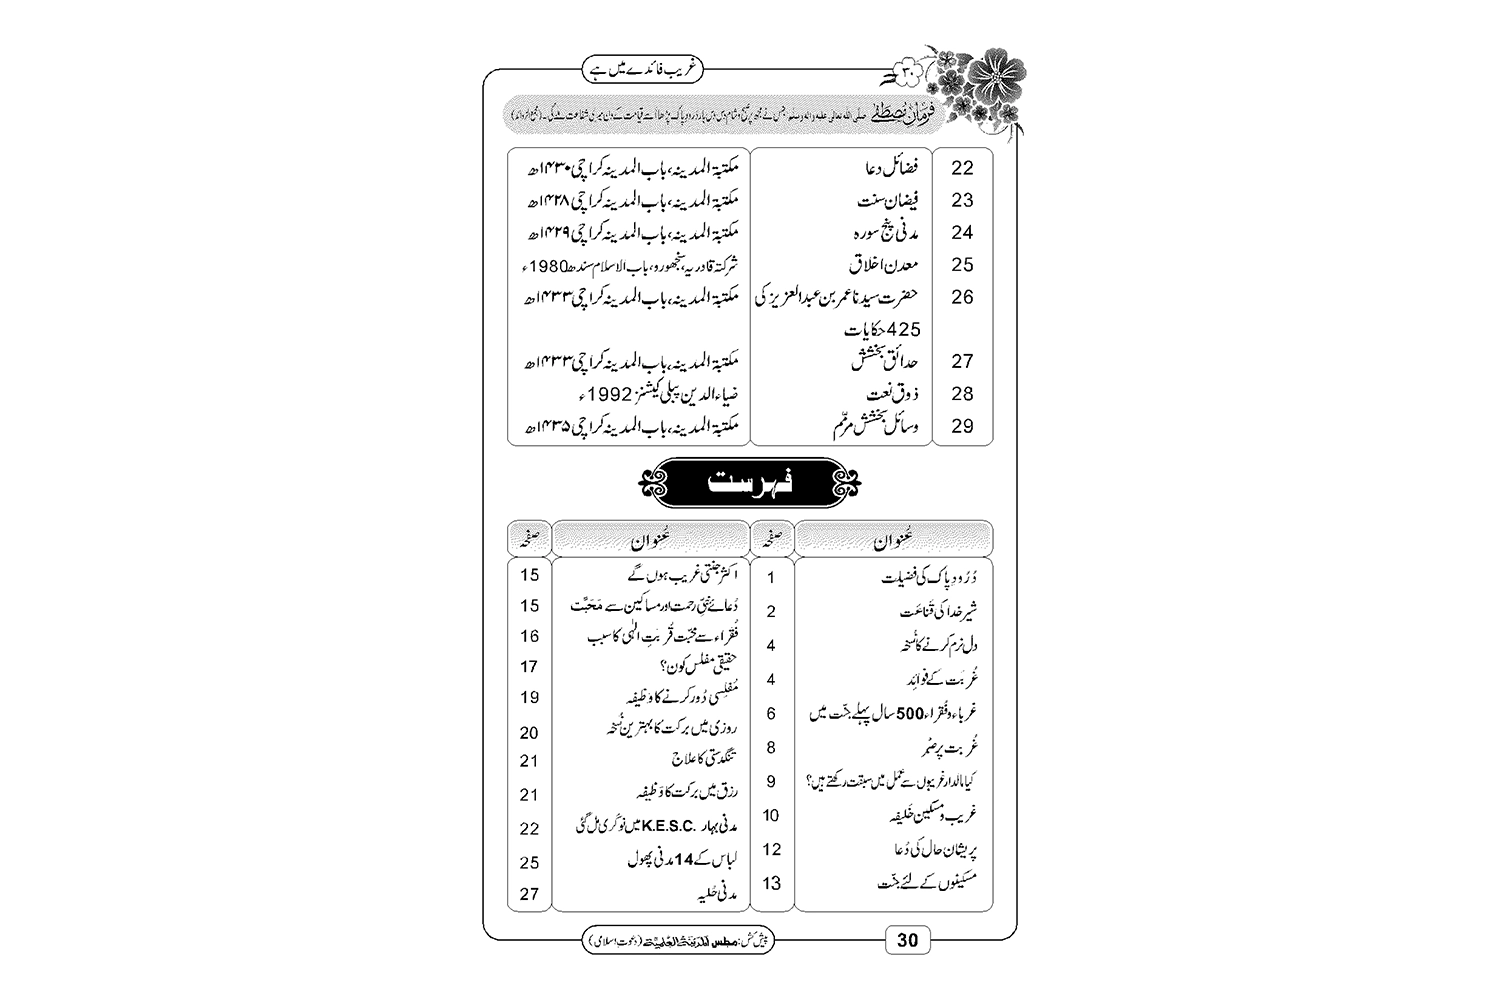 غریب فائدے میں ہے
۳۰
فرمانِ مصطفٰے صلی اللہ تعالٰی علیہ والہ وسلم جس نے مجھ پر صبح و شام دس دس بار درود پاک پڑھا اُسے قیامت کے دن میری شفاعت ملے گی۔ (مجمع الزوائد)
22 فضائل دعا مکتبۃ المدینہ، باب المدینہ کراچی ۱۴۳۰ھ
23 فیضان سنت مکتبۃ المدینہ، باب المدینہ کراچی ۱۴۲۸ھ
24 مدنی پنج سورہ مکتبۃ المدینہ، باب المدینہ کراچی ۱۴۲۹ھ
25 معدن اخلاق شرکتہ قادریہ، سنجھورو، باب الاسلام سندھ 1980ء
26 حضرت سیدنا عمر بن عبدالعزیز کی مکتبۃ المدینہ، باب المدینہ کراچی ۱۴۳۳ھ
425 حکایات
27 حدائق بخشش مکتبۃ المدینہ، باب المدینہ کراچی ۱۴۳۳ھ
28 ذوق نعت ضیاء الدین پبلی کیشنز 1992ء
29 وسائل بخشش مرمّم مکتبۃ المدینہ، باب المدینہ کراچی ۱۴۳۵ھ
فہرست
عُنوان صفحہ عُنوان صفحہ
دُرُودِ پاک کی فضیلت 1 اکثر جنتی غریب ہوں گے 15
شیرِ خدا کی قَناعَت 2 دُعائے نبیِّ رحمت اور مساکین سے مَحَبَّت 15
دل نرم کرنے کا نُسخہ 4 فُقراء سے محبّت قُربَتِ الٰہی کا سبب 16
غُربَت کے فوائِد 4 حقیقی مفلس کون؟ 17
غرباء و فُقراء 500 سال پہلے جنّت میں 6 مُفلِسی دُور کرنے کا وَظیفہ 19
غُربت پر صَبْر 8 روزی میں برکت کا بہترین نُسخہ 20
کیا مالدار غریبوں سے عمل میں سبقت رکھتے ہیں؟ 9 تنگدستی کا علاج 21
غریب و مسکین خَلیفہ 10 رزق میں برکت کا وَظیفہ 21
پریشان حال کی دُعا 12 مدنی بہار .K.E.S.C میں نوکری مل گئی 22
مسکینوں کے لئے جنّت 13 لباس کے 14 مدنی پھول 25
مدنی حُلیہ 27
30
پیش کش: مجلس المدینۃ العلمیۃ (دعوتِ اسلامی)